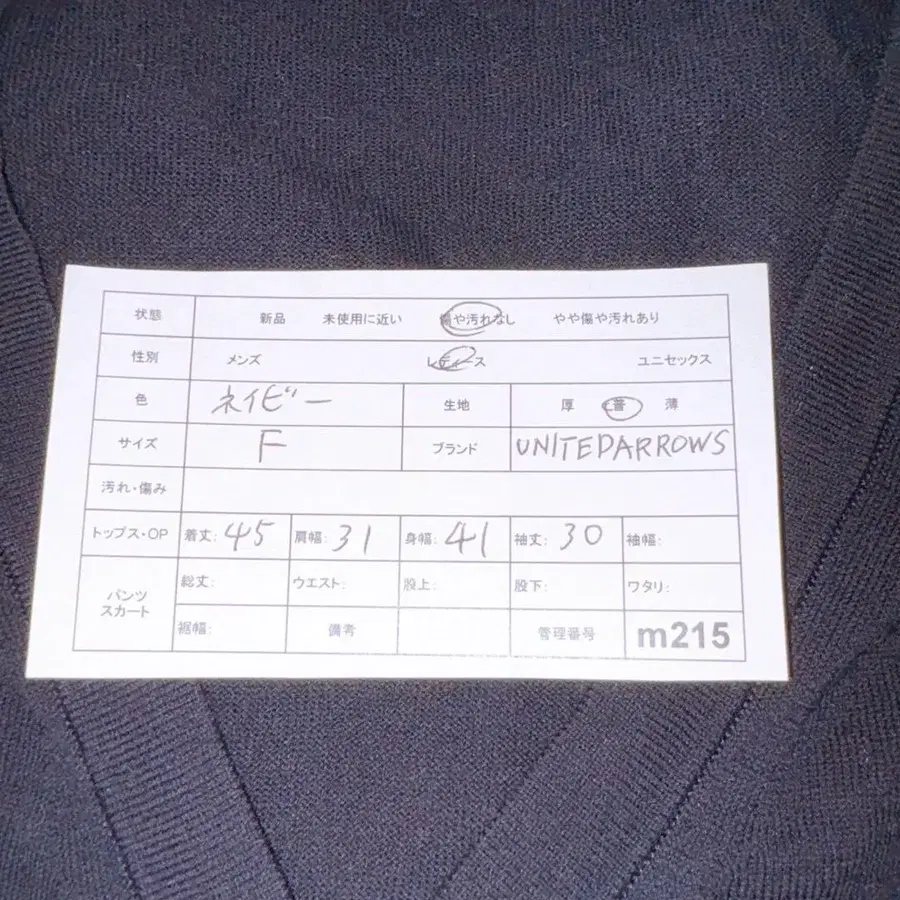 状態 新品 未使用に近い 傷や汚れなし やや傷や汚れあり
性別 メンズ レディース ユニセックス
色 ネイビー 生地 厚 普 薄
サイズ F ブランド UNITEDARROWS
汚れ・傷み
トップス・OP 着丈: 45 肩幅: 31 身幅: 41 袖丈: 30 袖幅:
パンツ スカート 総丈: ウエスト: 股上: 股下: ワタリ:
裾幅: 備考 管理番号 m215